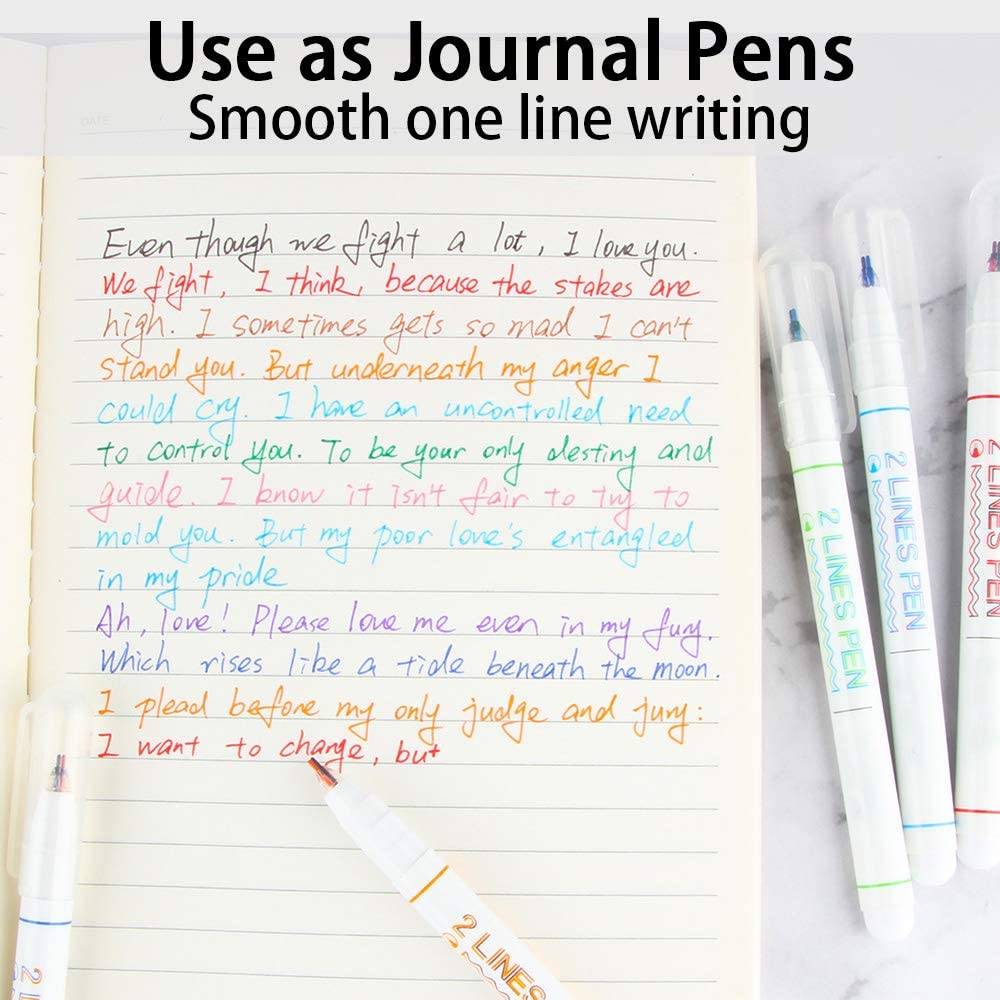 Use as Journal Pens
Smooth one line writing
DATE
Even though we fight a lot, I love you.
We fight, I think, because the stakes are
high. I sometimes gets so mad I can't
stand you. But underneath my anger I
could cry. I have an uncontrolled need
to control you. To be your only destiny and
guide. I know it isn't fair to try to
mold you. But my poor love's entangled
in my pride
Ah, love! Please love me even in my fury.
Which rises like a tide beneath the moon.
I plead before my only judge and jury:
I want to change, but
2 LINES PEN
2 LINES PEN
2 LINES PEN
2 LINES
2 LI